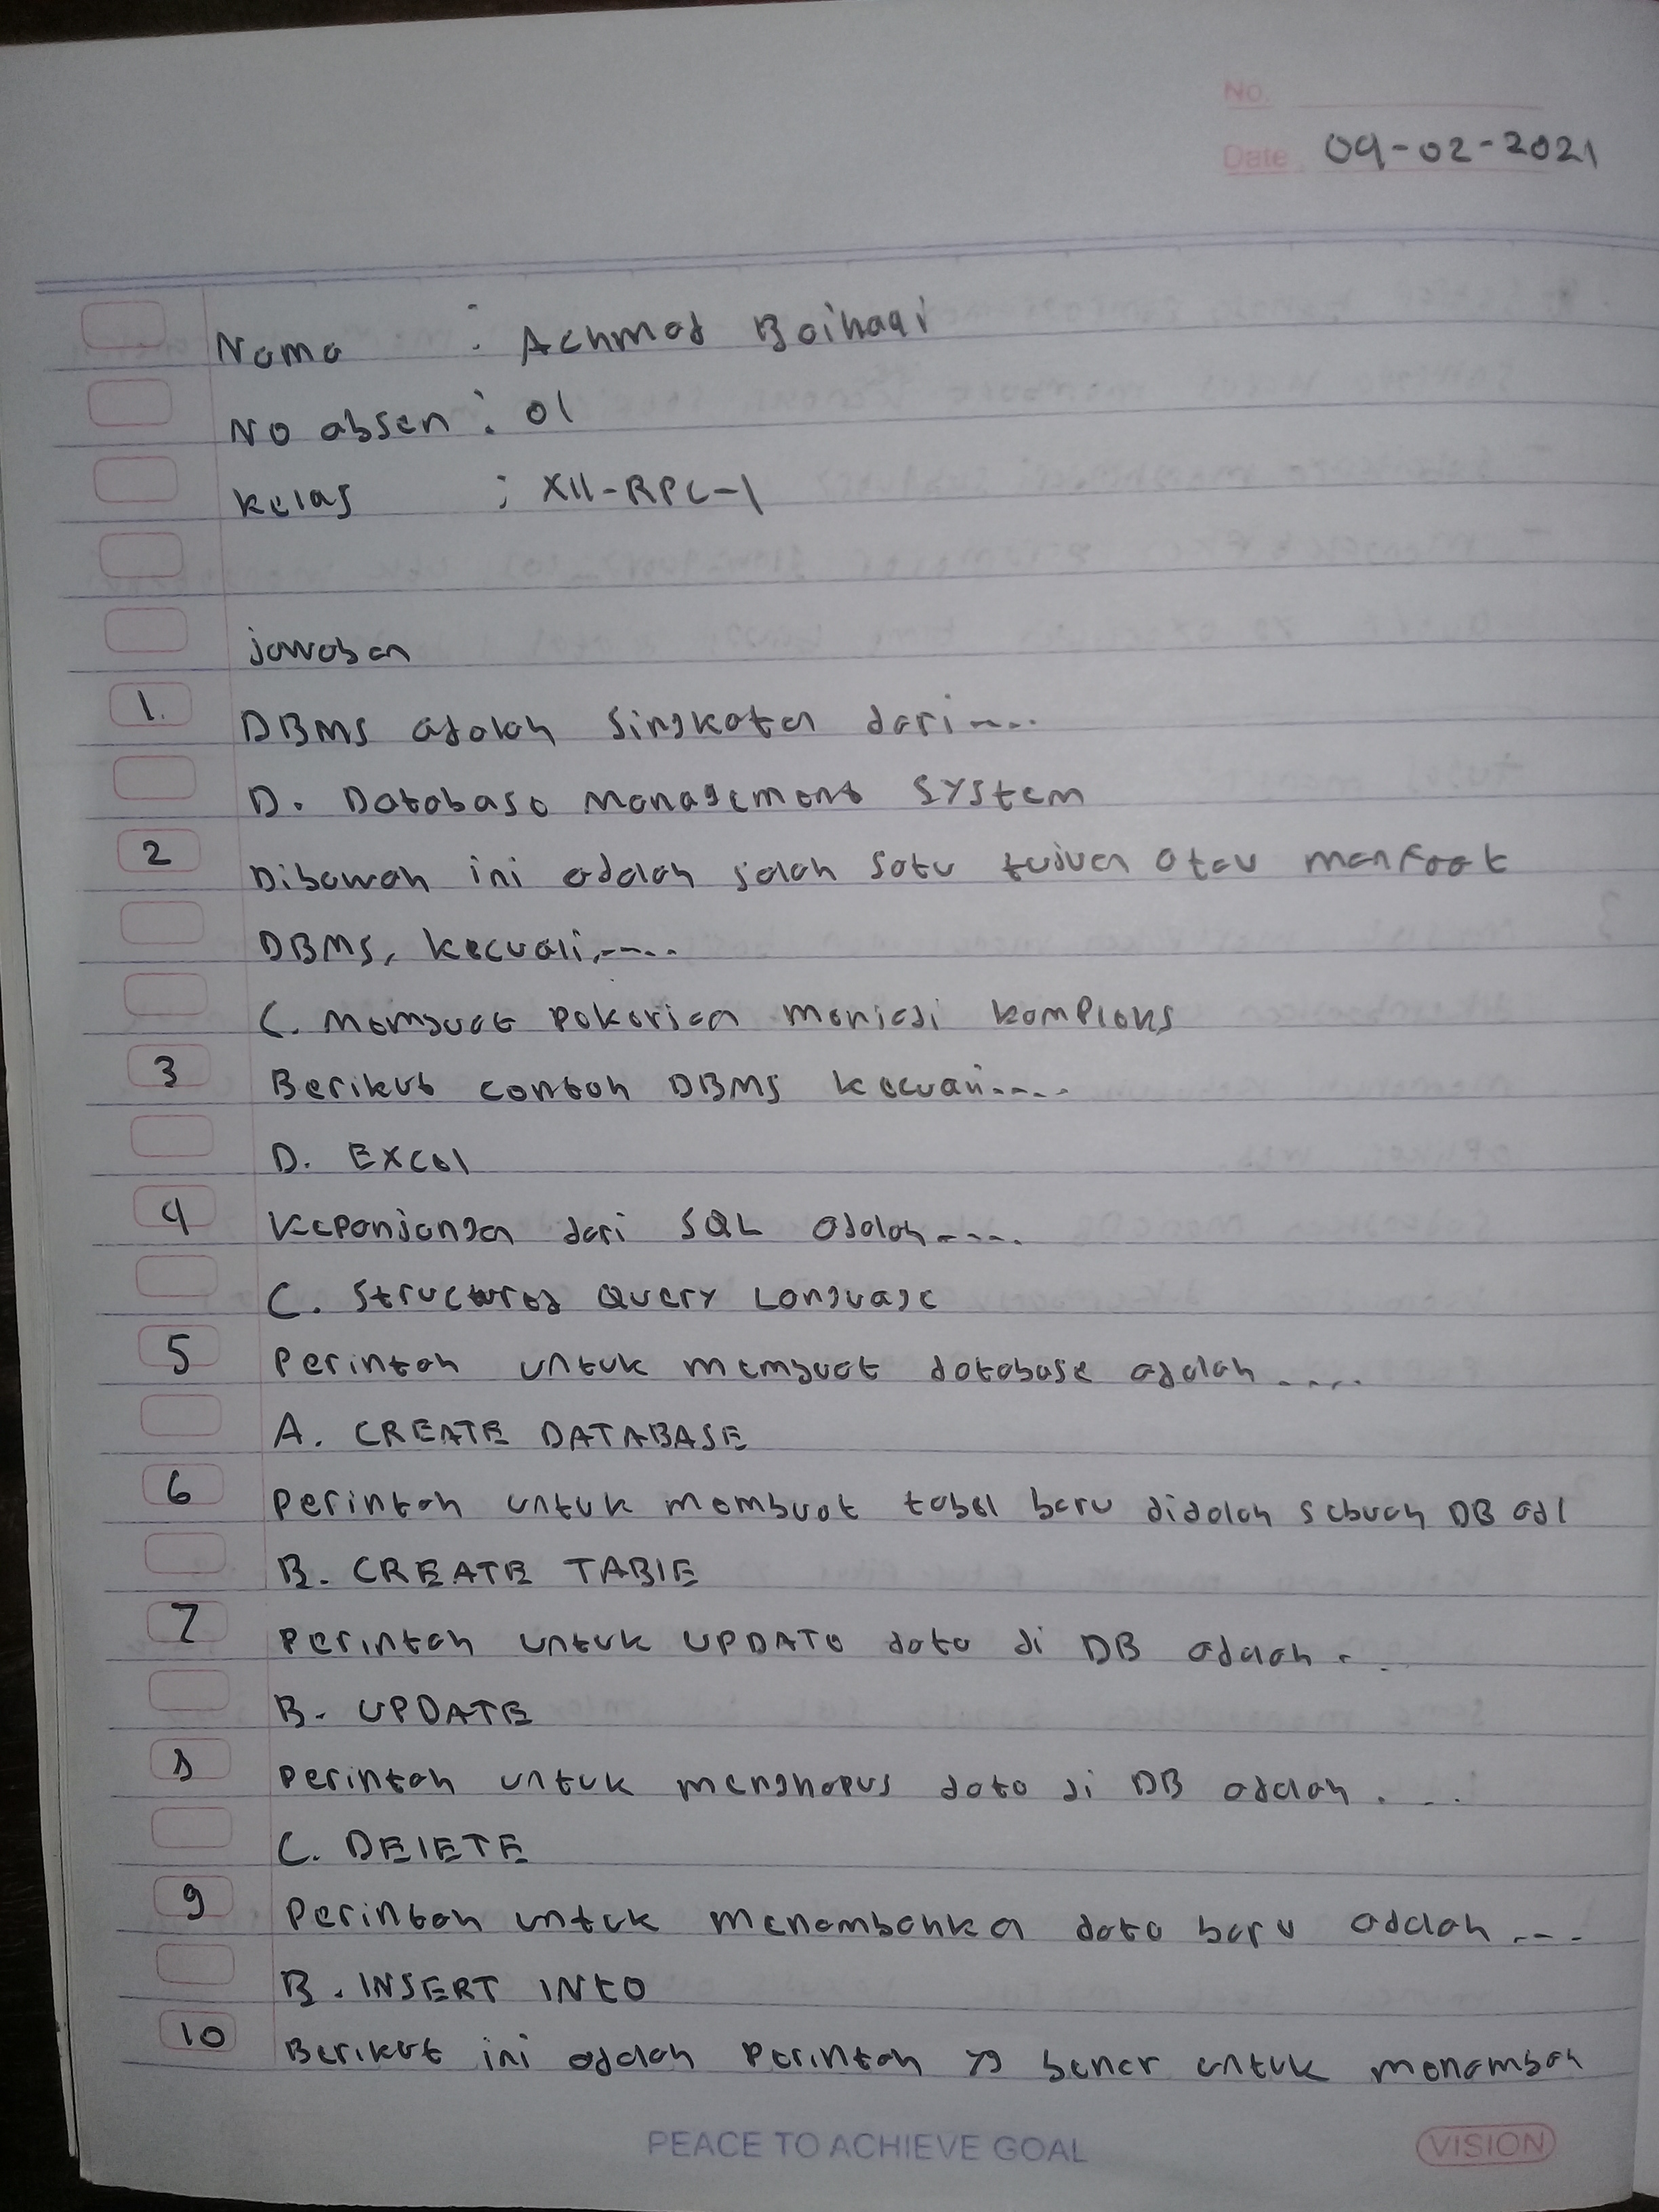 No.
Date 09-02-2021
Nama : Achmad Baihaqi
No absen : 01
Kelas : XII-RPL-1
jawaban
1. DBMS adalah Singkatan dari....
D. Database Management System
2 Dibawah ini adalah salah satu tujuan atau manfaat
DBMS, kecuali,....
C. Membuat pekerjaan menjadi kompleks
3 Berikut contoh DBMS kecuali....
D. Excel
4 Kepanjangan dari SQL adalah....
C. Structured Query Language
5 Perintah untuk membuat database adalah....
A. CREATE DATABASE
6 perintah untuk membuat tabel baru didalah sebuah DB adl
B. CREATE TABlE
7 Perintah untuk UPDATe data di DB adalah...
B. UPDATE
8 perintah untuk menghapus data di DB adalah....
C. DElETE
9 Perintah untuk menambahkan data baru adalah....
B. INSERT INtO
10 Berikut ini adalah Perintah yg benar untuk menambah
PEACE TO ACHIEVE GOAL
VISION